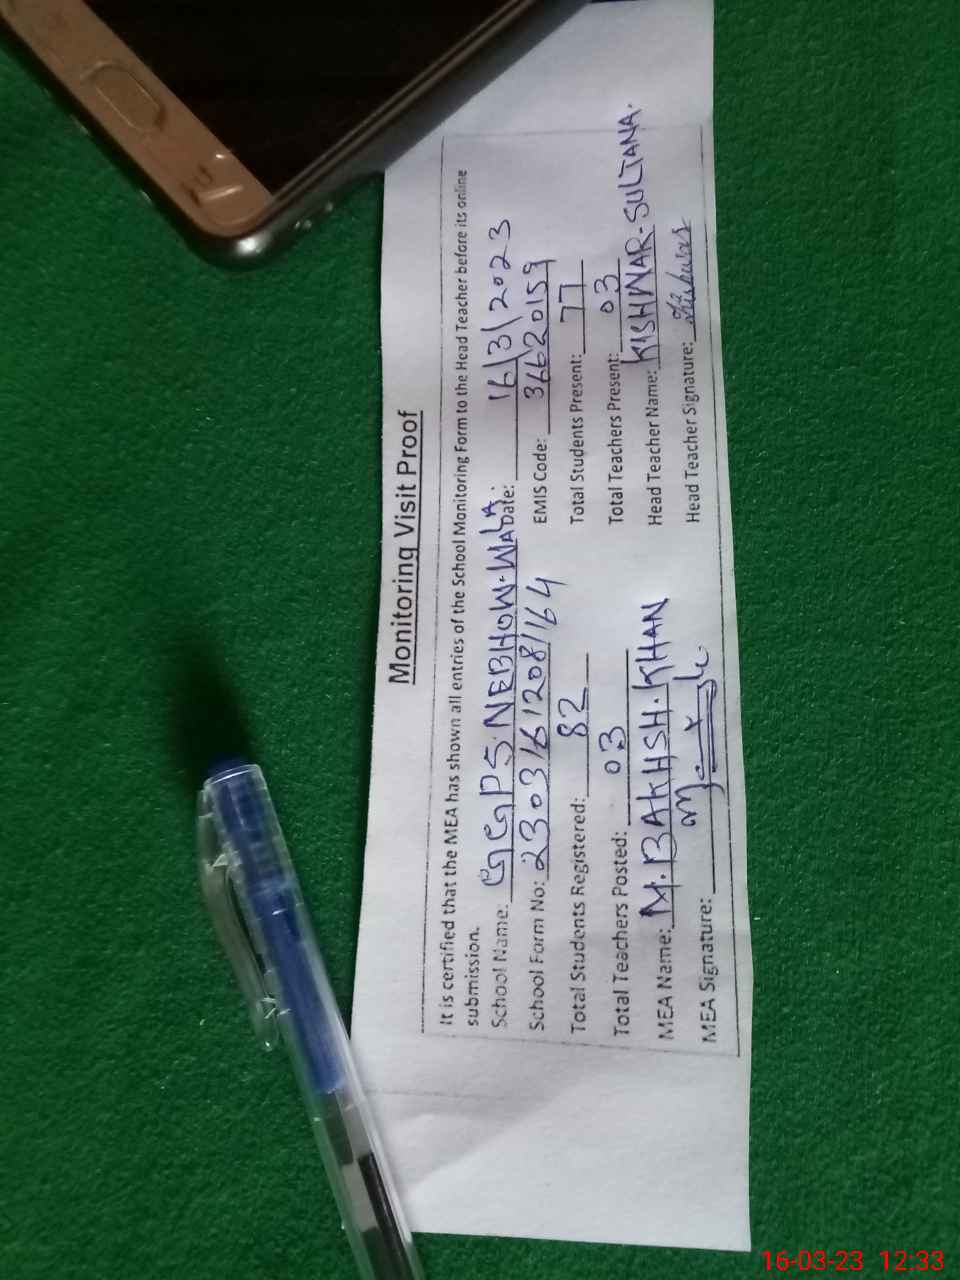 Monitoring Visit Proof
It is certified that the MEA has shown all entries of the School Monitoring Form to the Head Teacher before its online
submission.
School Name: GGPS. NEBHOW. WALA. Date: 16/3/2023
School Form No: 2303161208164 EMIS Code: 36620159
Total Students Registered: 82 Total Students Present: 77
Total Teachers Posted: 03 Total Teachers Present: 03
MEA Name: M. BAKHSH. KHAN Head Teacher Name: KISHWAR-SULTANA.
MEA Signature: Head Teacher Signature:
16-03-23 12:33